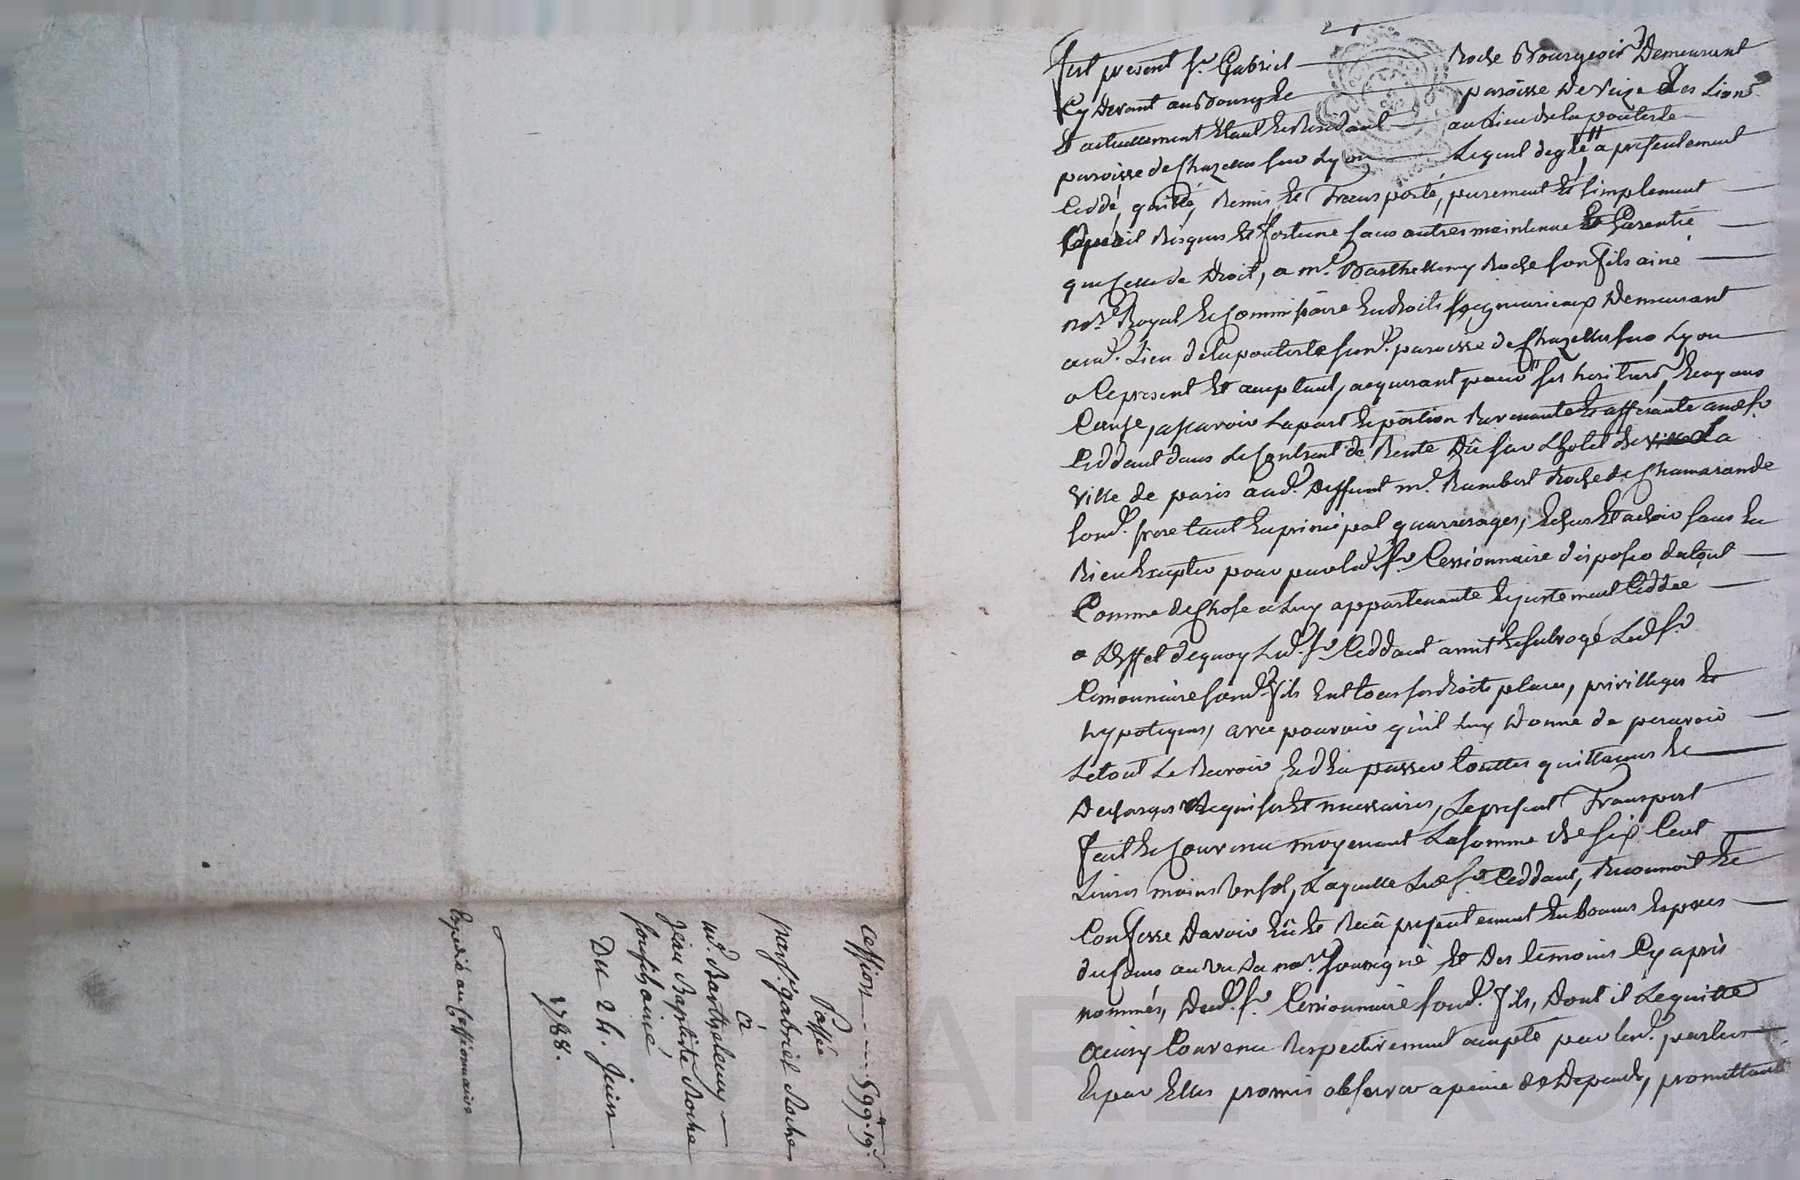 fut présent sr. Gabriel Roche Bourgeois Demeurant
Cy devant au Bourg de paroisse de Vize Les Lions
Et actuellement Etant Et Residant au Lieu de la
paroisse de Chazelles sur Lyon Lequel de gré a presentement
Ceddé, quitté, Remis Et Transporté, purement Et simplement
Risques Et fortune sans autres maintenue Et Garentie
que celle de Droit, a me. Barthellemy Roche son fils ainé
nore. Royal Et Commissaire En droits seigneuriaux Demeurant
aud. Lieu de la sud. paroisse de Chazelles sur Lyon
a Ce present Et acceptant, acquerant pour ses heritiers, Et ayans
Cause, a sçavoir La part Et portion Revenante Et afferante aud. sr
Ceddant dans Le Contrat de Rente Dû sur L'hotel de La
Ville de paris aud. Deffunt me. Rambert Roche de Chamarande
sond. frere tant En principal qu'arrerages, Echus Et a choir sans En
Rien Excepter pour par led. sr. Cessionnaire disposer du tout
Comme de Chose a Luy appartenante Et justement Ceddée
a L'Effet de quoy Led. sr Ceddant a mis Et subrogé Led. sr
Cessionnaire sond. fils En tous ses droits places, privilleges Et
hypoteques, avec pouvoir qu'il Luy Donne de percevoir
Le tout Le Recevoir Et d'En passer touttes quittances Et
Decharges Requises Et necessaires, Le present Transport
fait Et Convenu moyenant La somme de six Cent
Livres moins Un sol, Laquelle Led. sr. Ceddant, Reconnoit Et
Confesse D'avoir Eû Et Reçû presentement En bonnes Especes
de cours au Vu du nore. soussigné Et Des temoins Cy après
nommés, Dud. sr. Cessionnaire sond. fils, Dont il Le quitte
Ainsy Convenu Respectivement accepté par Les d. parties
Et par Elles promis observer a peine de Depends, promettant
Cession 599.# 19.s
Passée
par sr. gabriel Roche
à
me. Barthelemy
Jean Baptiste Roche
son fils ainé
Du 24. Juin
1788.
Expedié au Cessionnaire